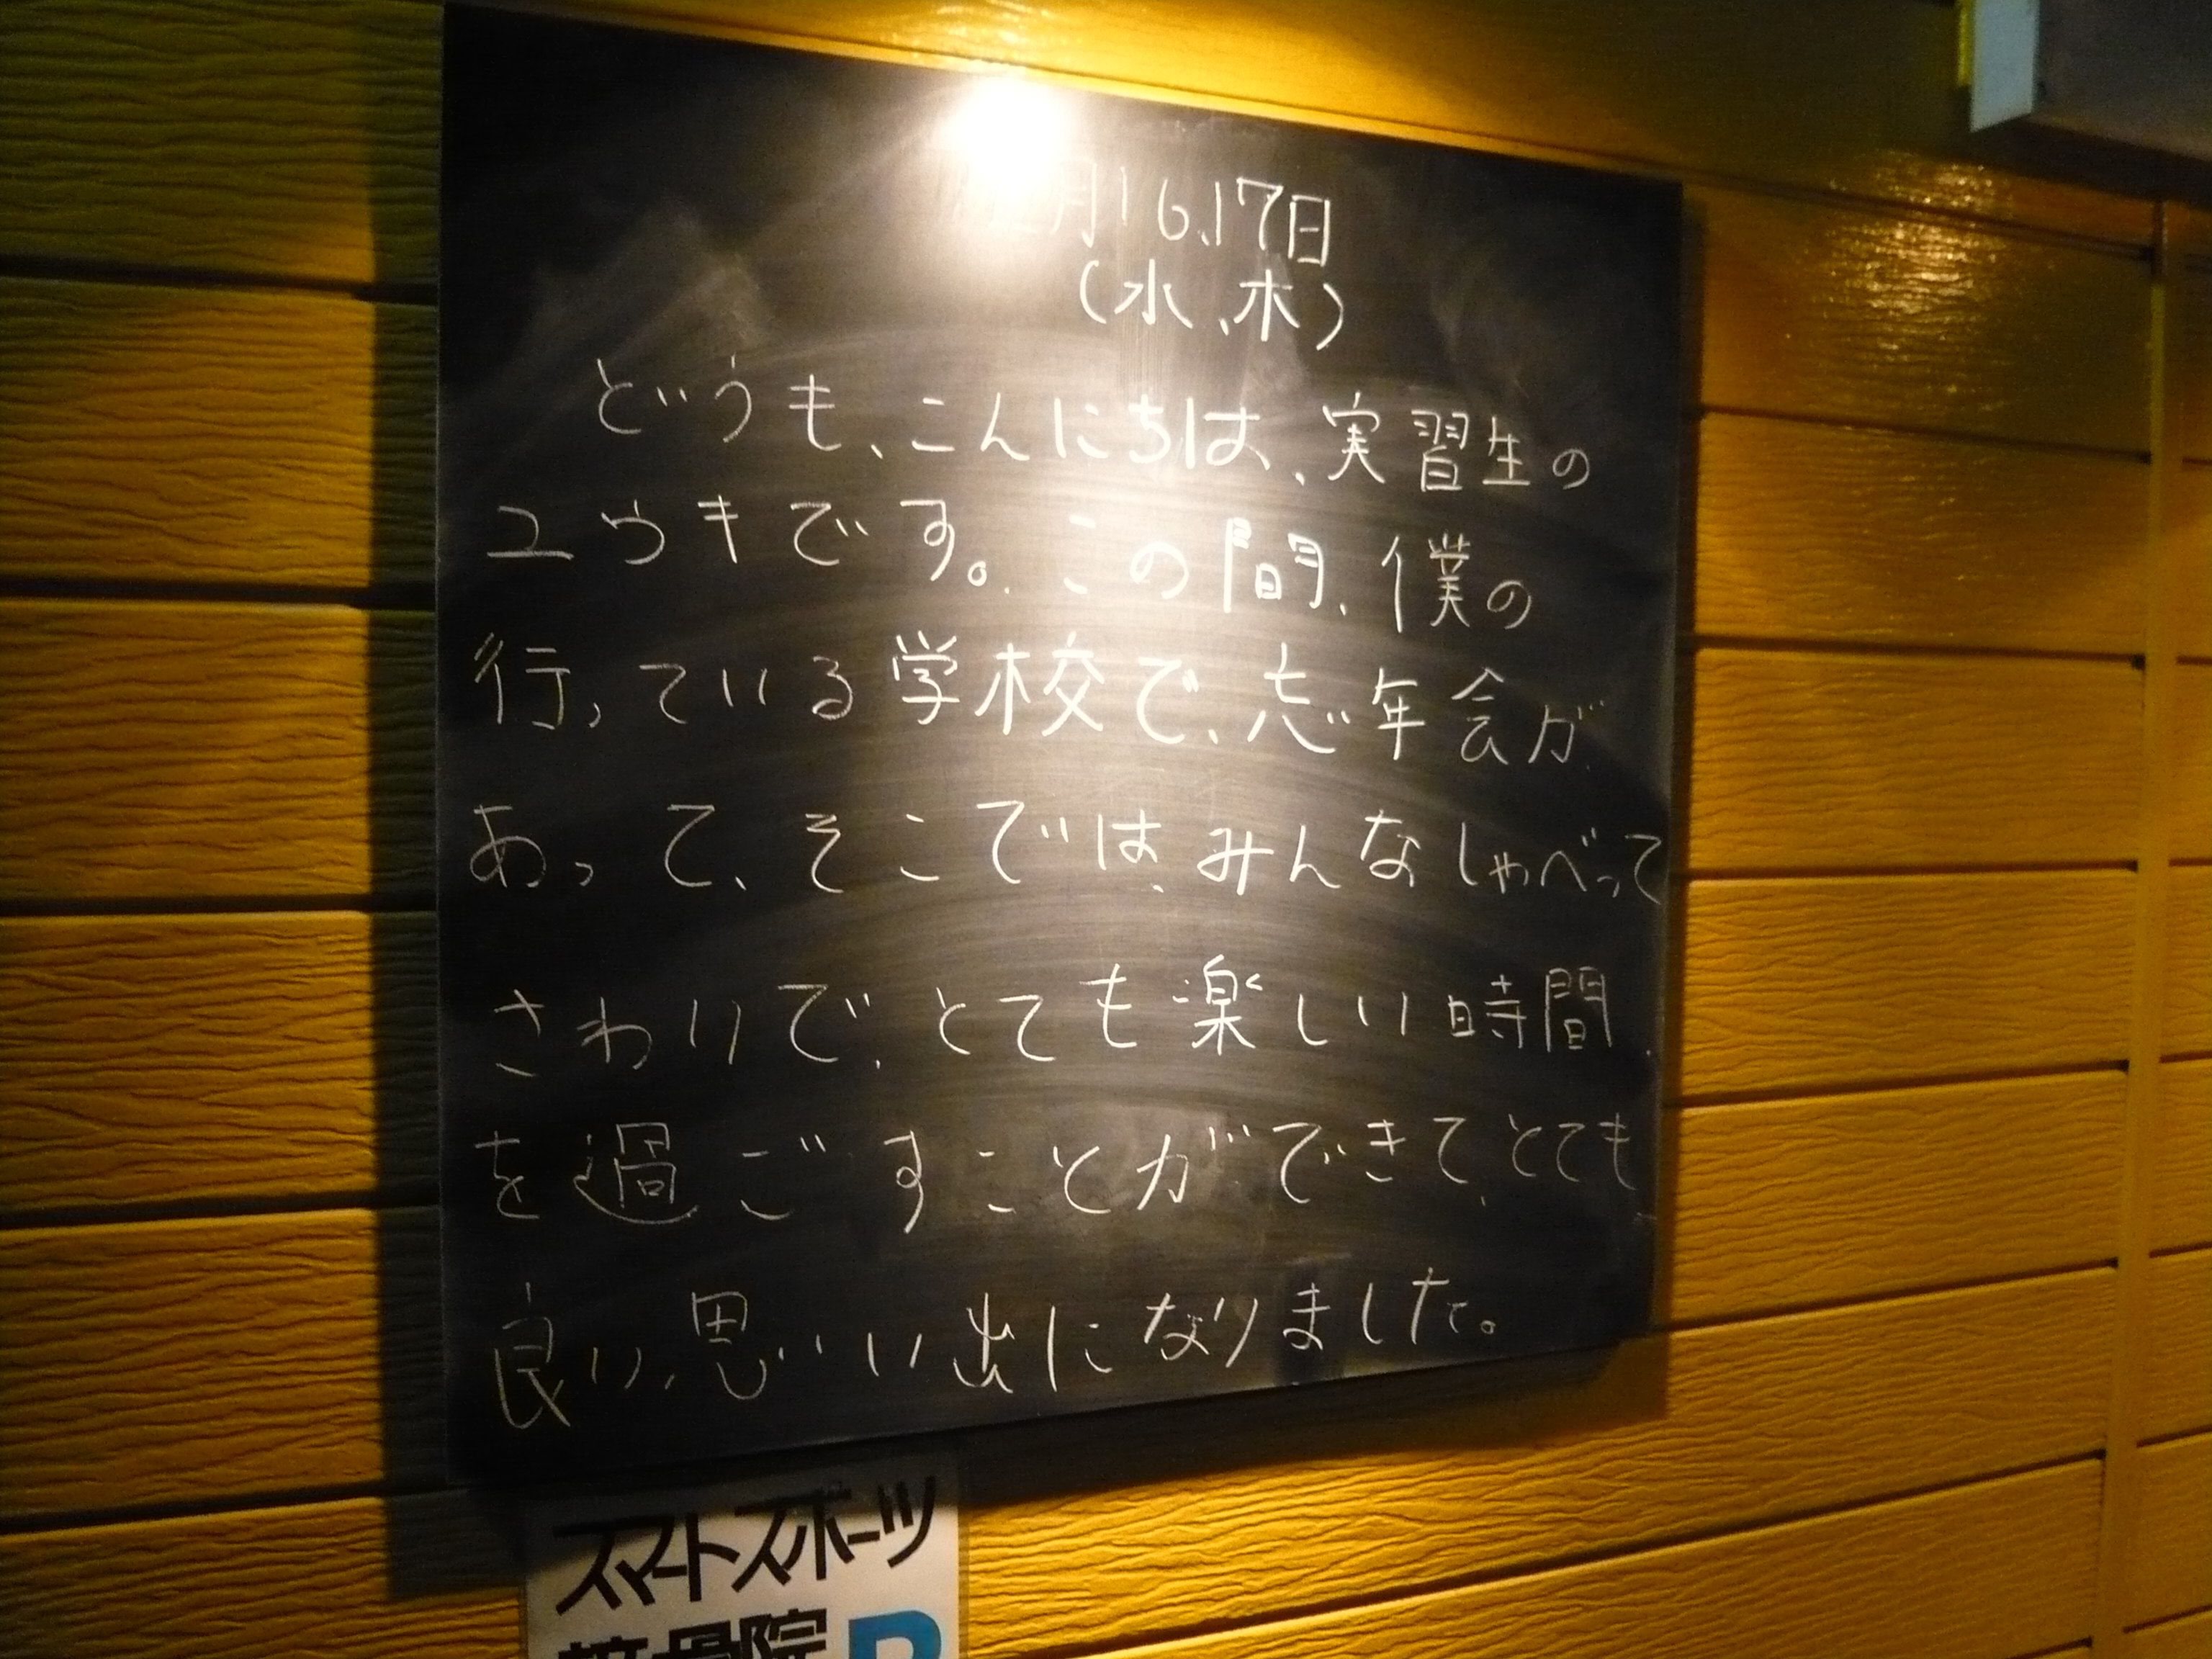 月16、17日
(水、木)
どうも、こんにちは、実習生の
ユウキです。この間、僕の
行っている学校で、忘年会が
あって、そこでは、みんなしゃべって
さわりで、とても楽しい時間
を過ごすことができて、とても
良い、思いい出になりました。
スマートスポーツ
接骨院 P